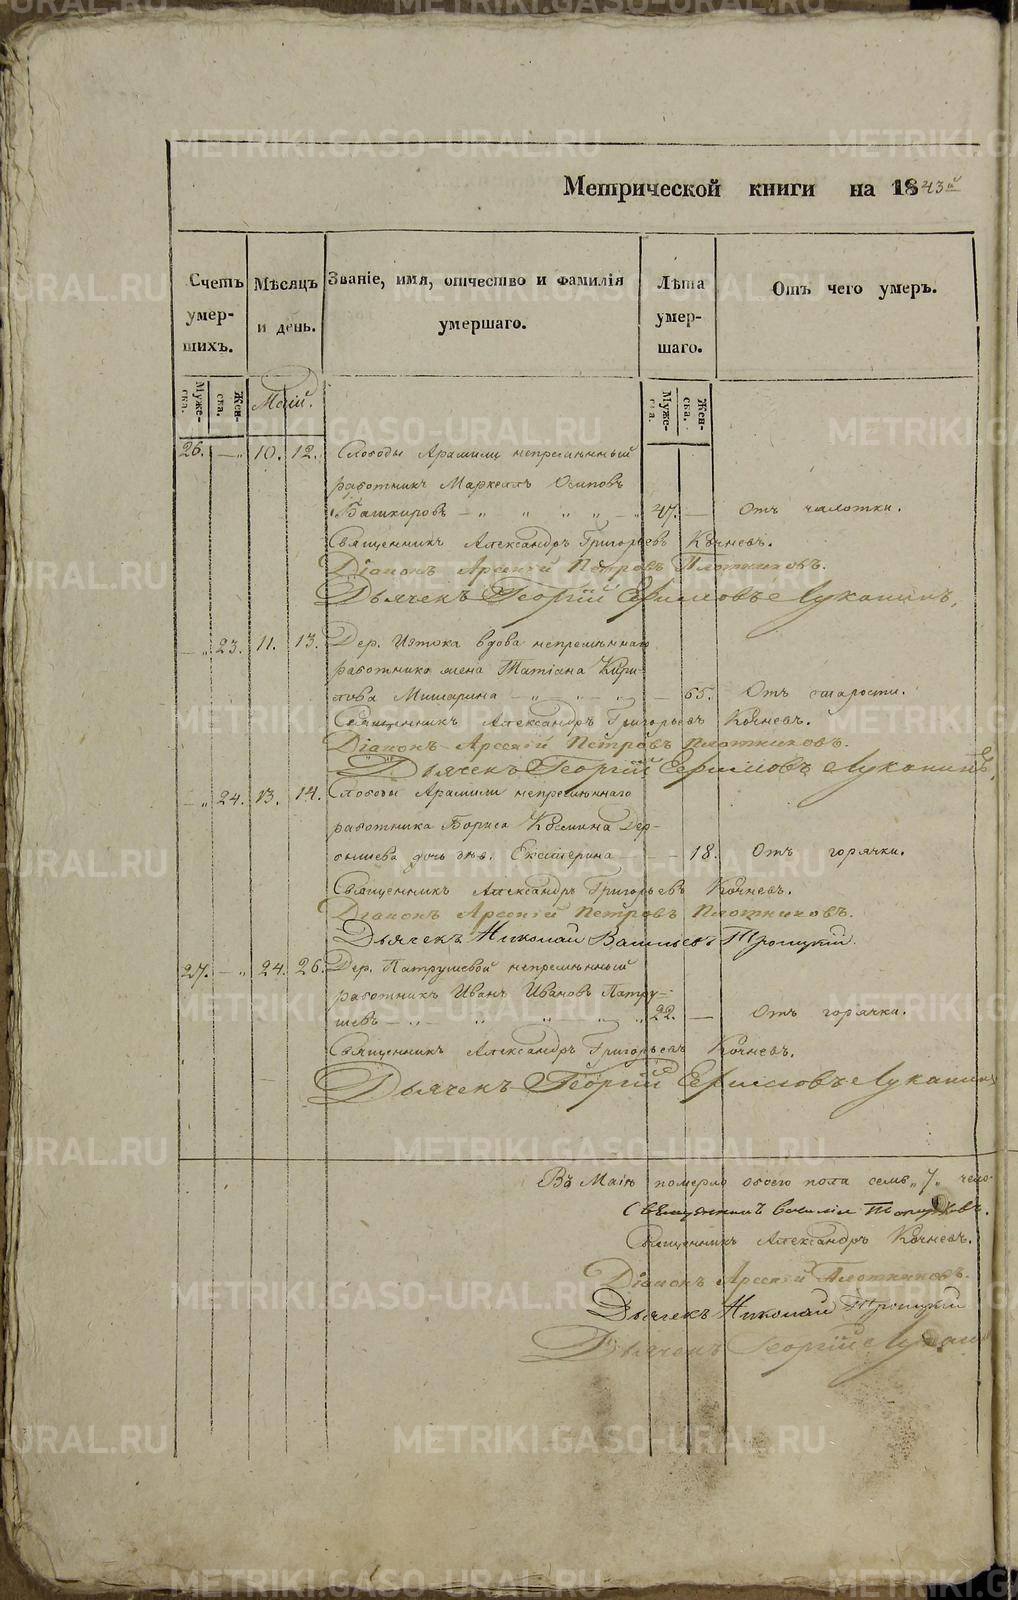 Метрической книги на 1843й
Счетъ умер-шихъ.
Мѣсяцъ и день.
Званіе, имя, отчество и фамилія умершаго.
Лѣта умер-шаго.
Отъ чего умеръ.
Муже-ска. Жен-ска. Маій. Муже-ска. Жен-ска.
26. — 10. 12. Слободы Арамили непремѣнный
работникъ Маркеллъ Осиповъ
Башкировъ — 47. — Отъ чахотки.
Священникъ Александръ Григорьевъ Кочневъ.
Діаконъ Арсеній Петровъ Плотниковъ.
Дьячекъ Георгій Ефимовъ Луканинъ.
— 23. 11. 13. Дер. Изтока вдова непремѣннаго
работника жена Татіана Кири-
лова Мишарина — 65. Отъ старости.
Священникъ Александръ Григорьевъ Кочневъ.
Діаконъ Арсеній Петровъ Плотниковъ.
Дьячекъ Георгій Ефимовъ Луканинъ.
— 24. 13. 14. Слободы Арамили непремѣннаго
работника Бориса Космина Дер-
бышева дочь дѣв. Екатерина — 18. Отъ горячки.
Священникъ Александръ Григорьевъ Кочневъ.
Діаконъ Арсеній Петровъ Плотниковъ.
Дьячекъ Николай Васильевъ Троицкій.
27. — 24. 26. Дер. Патрушевой непремѣнный
работникъ Иванъ Ивановъ Патру-
шевъ — 22. — Отъ горячки.
Священникъ Александръ Григорьевъ Кочневъ.
Дьячекъ Георгій Ефимовъ Луканинъ
Въ Маіѣ померло обоего пола семь „7„ чело-
Священникъ Василій
Священникъ Александръ Кочневъ.
Діаконъ Арсеній Плотниковъ.
Дьячекъ Николай Троицкій
Дьячекъ Георгій Лукани
METRIKI.GASO-URAL.RU